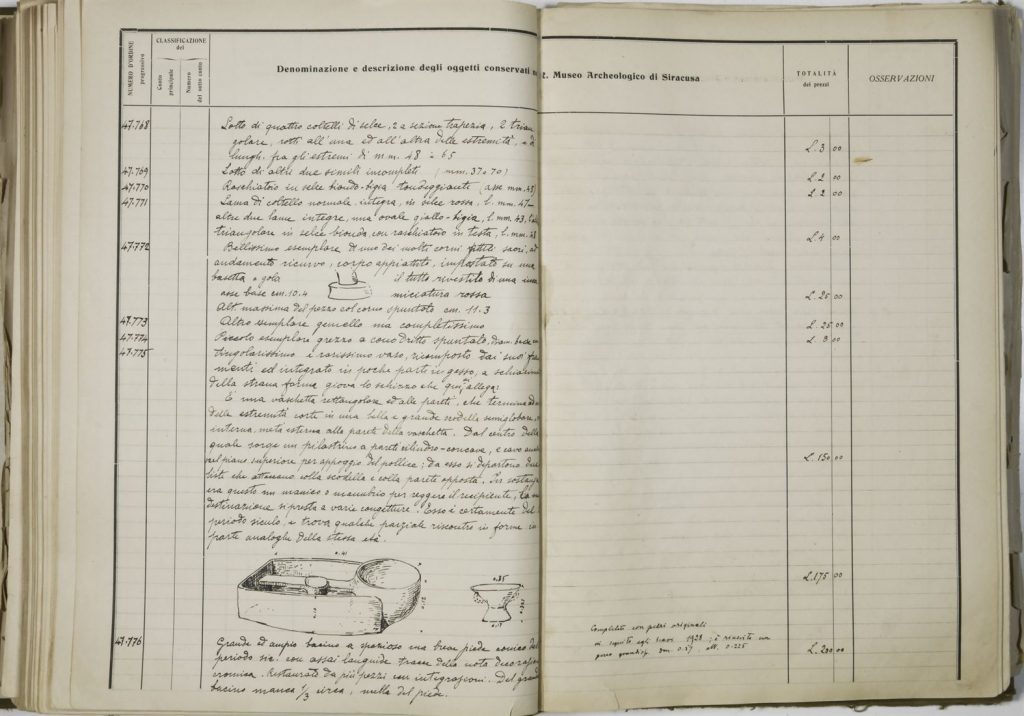 NUMERO D'ORDINE progressivo
CLASSIFICAZIONE del
Conto principale
Numero del sotto conto
Denominazione e descrizione degli oggetti conservati R. Museo Archeologico di Siracusa
TOTALITÀ dei prezzi
OSSERVAZIONI
47.768 Lotto di quattro coltelli di selce, 2 a sezione trapezia, 2 trian
golare, rotti all'una ed all'altra delle estremità, e di
lungh. fra gli estremi di m.m. 48 a 65 L. 3 00
47.769 Lotto di altri due simili incompleti (mm. 37 e 70) L. 2 00
47.770 Raschiatoio in selce biondo-bigia tondeggiante (asse mm. 45) L. 2 00
47.771 Lama di coltello normale integra, in selce rossa, l. mm. 47
altre due lame integre, una ovale giallo-bigia, l. mm. 43, l'altra
triangolare in selce bionda con raschiatoio in testa, l. mm. 48 L. 4 00
47.772 Bellissimo esemplare di uno dei molti corni fittili sacri, ad
andamento ricurvo, corpo appiattito, impostato su una
basetta a gola il tutto rivestito di una
asse base cm. 10.4 miniatura rossa L. 25 00
Alt. massima del pezzo col corno spuntato cm. 11.3
47.773 Altro esemplare gemello ma completissimo L. 25 00
47.774 Piccolo esemplare grezzo a cono dritto spuntato, diam. base L. 8 00
47.775 Singolarissimo e rarissimo vaso, ricomposto dai suoi fram
menti ed integrato in poche parti in gesso, a schiarimento
della strana forma giova lo schizzo che qui allega:
È una vaschetta rettangolare ed alte pareti, che termina ad una
delle estremità corte in una bella e grande scodella semiglobare,
interna, metà esterna alla parete della vaschetta. Dal centro della
quale sorge un pilastrino a pareti cilindro-concave, e cavo
nel piano superiore per appoggio del pollice; da esso si dipartono due
liste che attaccano colla scodella e colla parete opposta. In sostanza
era questo un manico o manubrio per reggere il recipiente, la cui
destinazione si presta a varie congetture. Esso è certamente del
periodo siculo, e trova qualche parziale riscontro in forme in
parte analoghe della stessa età.
L. 150 00
0.41
0.12
0.35
L. 175 00
47.776 Grande ed ampio bacino a spazioso ma breve piede conico del
periodo sic. con assai languide tracce della nota decorazione
cromica. Restaurato da più pezzi con integrazioni. Del grande
bacino manca 1/3 circa, nulla del piede.
Completato con pezzi originali
in seguito agli scavi 1928; è riuscito un
pezzo dm. 0.57 alt. 0.225
L. 200 00